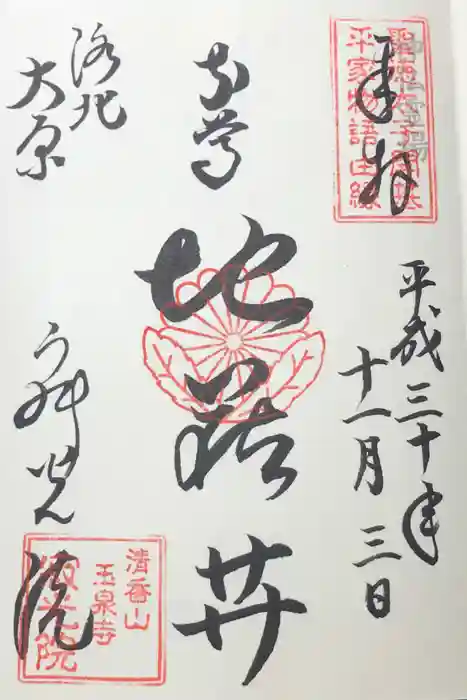 奉拝
聖徳太子開基
平家物語由縁
平成三十年
十一月三日
本尊
地蔵𦬇
洛北
大原
寂光院
清香山
玉泉寺
寂光院